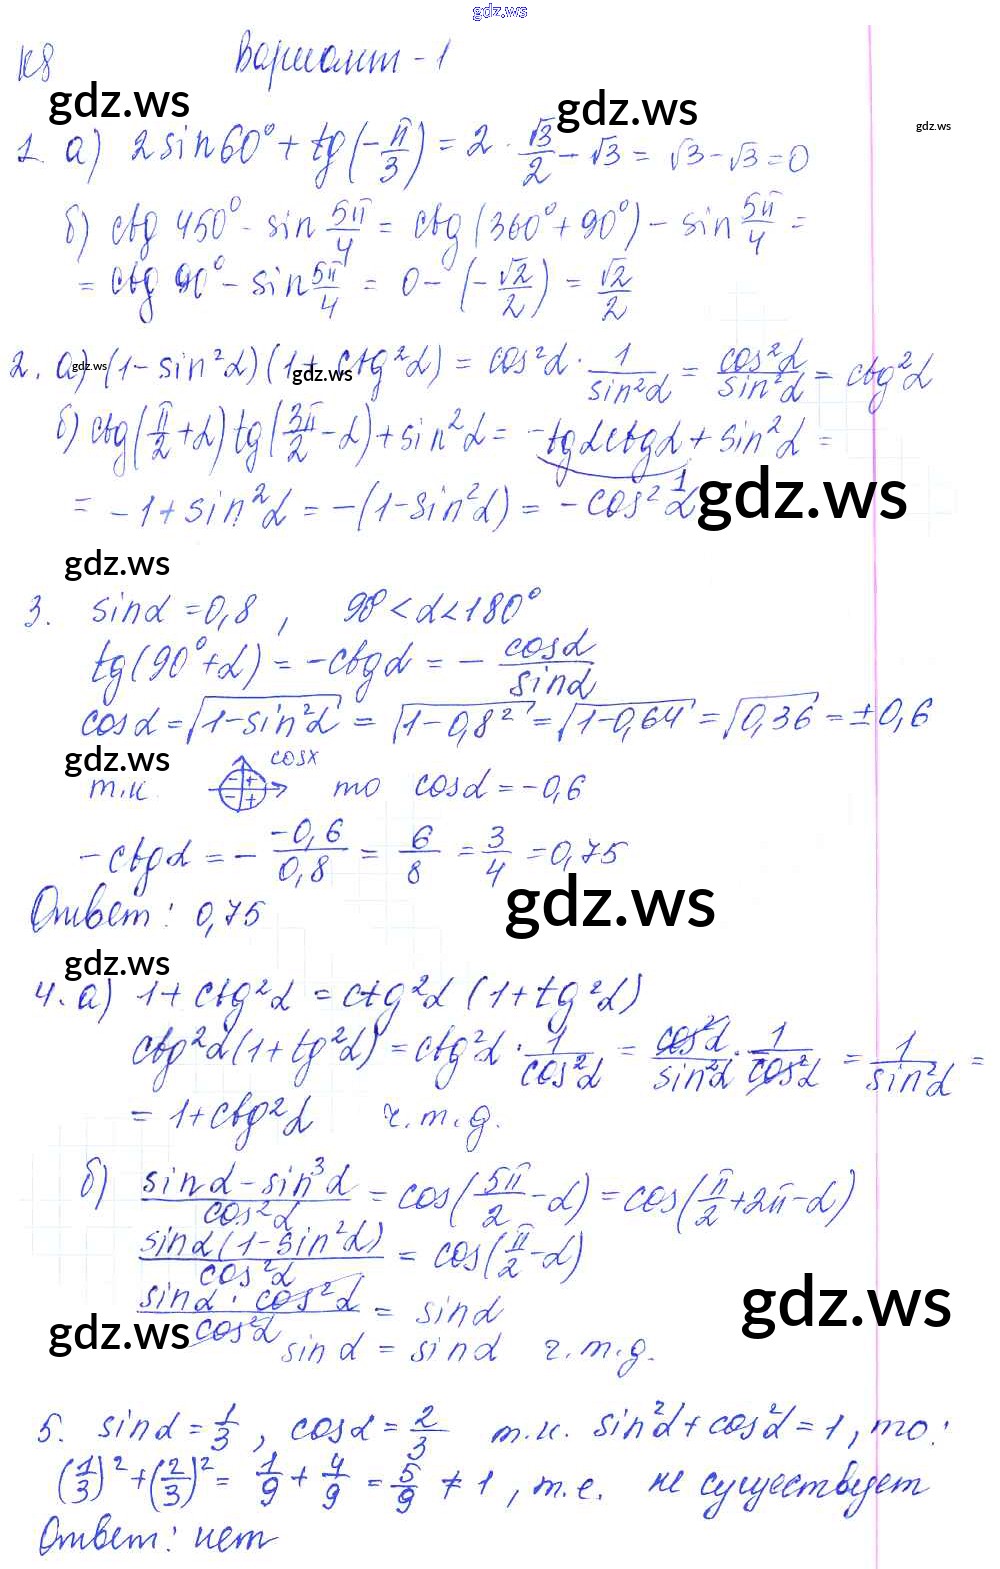 gdz.ws
К8 Вариант - 1
gdz.ws gdz.ws gdz.ws
1. а) 2 sin 60° + tg(-π/3) = 2 · √3/2 - √3 = √3 - √3 = 0
б) ctg 450° - sin 5π/4 = ctg(360° + 90°) - sin 5π/4 =
= ctg 90° - sin 5π/4 = 0 - (-√2/2) = √2/2
2. а) (1 - sin²α)(1 + ctg²α) = cos²α · 1/sin²α = cos²α/sin²α = ctg²α
gdz.ws gdz.ws
б) ctg(π/2 + α) tg(3π/2 - α) + sin²α = -tgα ctgα + sin²α =
1
= -1 + sin²α = -(1 - sin²α) = -cos²α
gdz.ws
gdz.ws
3. sinα = 0,8 , 90° < α < 180°
tg(90° + α) = -ctgα = - cosα/sinα
cosα = √(1 - sin²α) = √(1 - 0,8²) = √(1 - 0,64) = √0,36 = ±0,6
gdz.ws
cosx
т.к. - + - + то cosα = -0,6
-ctgα = - -0,6/0,8 = 6/8 = 3/4 = 0,75
Ответ: 0,75
gdz.ws
gdz.ws
4. а) 1 + ctg²α = ctg²α (1 + tg²α)
ctg²α(1 + tg²α) = ctg²α · 1/cos²α = cos²α/sin²α · 1/cos²α = 1/sin²α =
= 1 + ctg²α ч.т.д.
б) (sinα - sin³α)/cos²α = cos(5π/2 - α) = cos(π/2 + 2π - α)
sinα(1 - sin²α)/cos²α = cos(π/2 - α)
sinα · cos²α/cos²α = sinα
gdz.ws
gdz.ws
sinα = sinα ч.т.д.
5. sinα = 1/3 , cosα = 2/3 т.к. sin²α + cos²α = 1, то:
(1/3)² + (2/3)² = 1/9 + 4/9 = 5/9 ≠ 1 , т.е. не существует
Ответ: нет